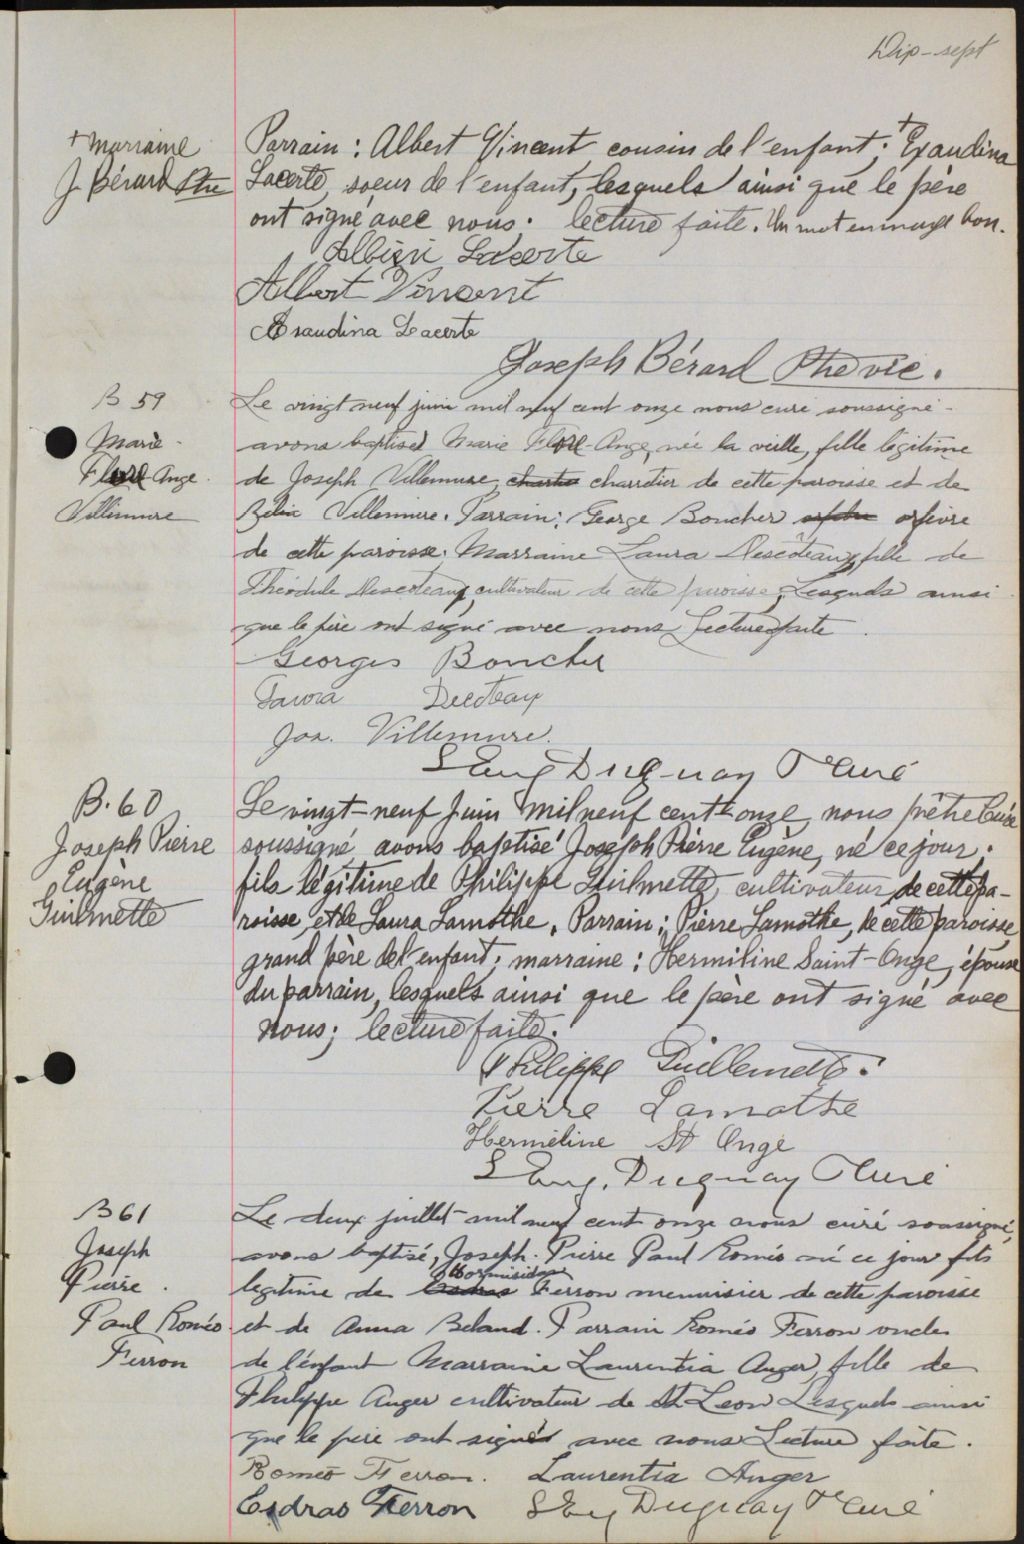 Dix-sept
+ marraine
J. Bérard Ptre
Parrain : Albert Vincent cousin de l'enfant; + Exaudina
Lacerte, soeur de l'enfant, lesquels ainsi que le père
ont signé avec nous. lecture faite. Un mot en marge bon.
Lacerte
Albert Vincent
Exaudina Lacerte
Joseph Bérard Ptre vic.
B 59
Marie
Flore-Ange
Villemure
Le vingt neuf juin mil neuf cent onze nous curé soussigné
avons baptisé Marie Flore-Ange, née la veille, fille légitime
de Joseph Villemure, charretier de cette paroisse et de
Villemure. Parrain: George Boucher orfèvre
de cette paroisse; Marraine Laura Descôteaux, fille de
Théodule Descoteaux, cultivateur de cette paroisse, Lesquels ainsi
que le père ont signé avec nous Lecture faite
Georges Boucher
Laura Decoteaux
Jos. Villemure.
S. Eug Duguay Ptre curé
B. 60
Joseph Pierre
Eugène
Guilmette
Le vingt-neuf Juin mil neuf cent onze, nous prêtre Curé
soussigné avons baptisé Joseph Pierre Eugène, né ce jour,
fils légitime de Philippe Guilmette, cultivateur, de cette pa-
roisse, et de Laura Lamothe. Parrain: Pierre Lamothe, de cette paroisse,
grand père de l'enfant; marraine : Hermiline Saint-Onge, épouse
du parrain, lesquels ainsi que le père ont signé avec
nous; lecture faite.
Philippe Guillemette.
Pierre Lamothe
Herméline St Onge
S. Eug. Duguay Ptre curé
B 61
Joseph
Pierre
Paul Roméo
Ferron
Le deux juillet mil neuf cent onze nous curé soussigné,
avons baptisé, Joseph Pierre Paul Roméo né ce jour fils
Hormisidas
legitime de Esdras Ferron menuisier de cette paroisse
et de Anna Beland. Parrain Roméo Ferron oncle
de l'enfant Marraine Laurentia Auger, fille de
Philippe Auger cultivateur de St Leon Lesquels ainsi
que le père ont signés avec nous Lecture faite.
Romeo Ferron. Laurentia Auger
Esdras Ferron S. Eug Duguay Ptre curé